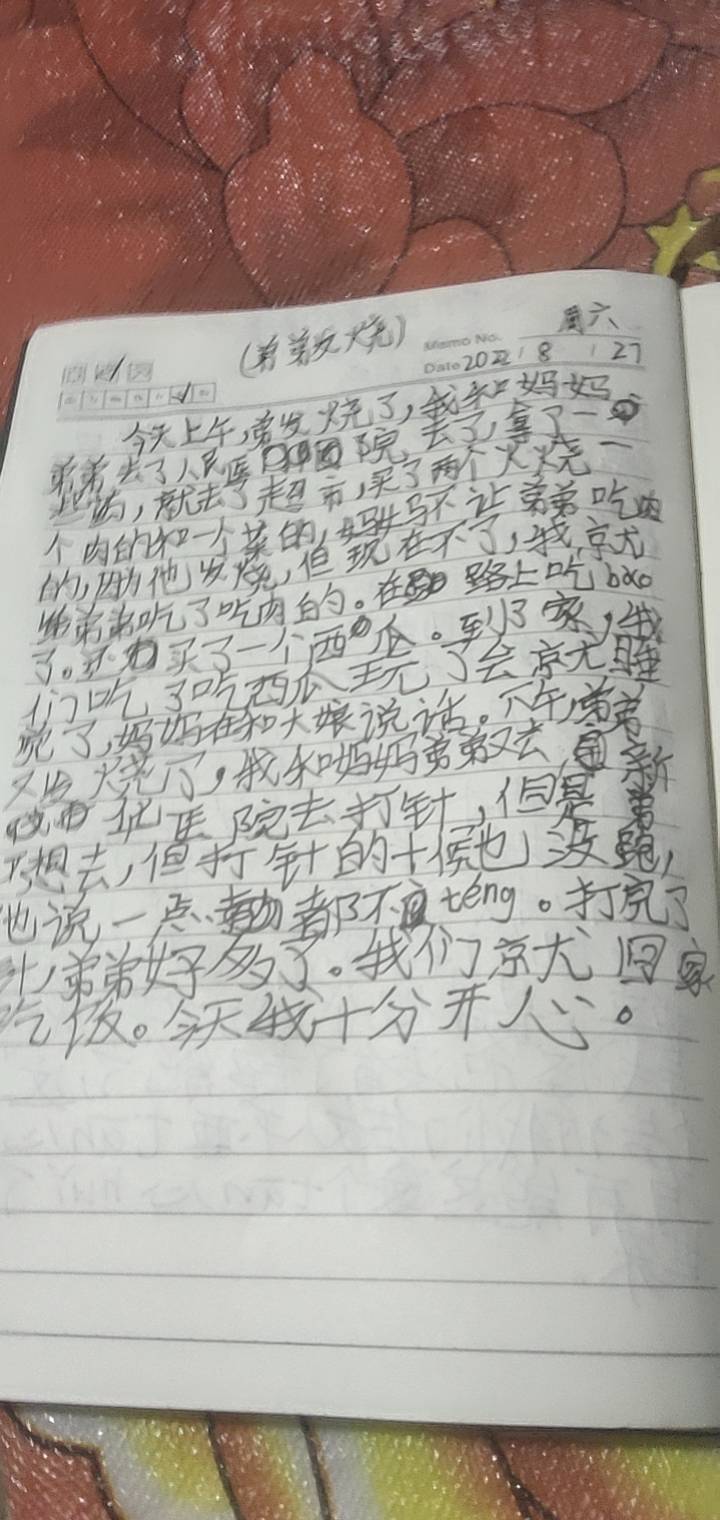 (弟弟发烧)
Memo No.
周六
Date 2022 / 8 / 27
今天上午,弟发烧了,我和妈妈
弟弟去了人民医院,去了,拿了一
些药,就去了超市,买了两个火烧一
个肉的和一个菜的,妈妈不让弟弟吃肉
的,因为他发烧,但现在不了,我京尤
弟弟吃了吃肉的。在路上吃bǎo
了。还买了一个西瓜。到了家,我
们吃了吃西瓜玩了会京尤睡
觉了,妈妈在和大娘说话。下午,弟弟
又发烧了,我和妈妈弟弟又去新
华医院去打针,但是弟
不想去,但打针的十候也没跑,
他说一点都不téng。打完了
针,弟弟好多了。我们京尤回家
吃饭。今天我十分开心。